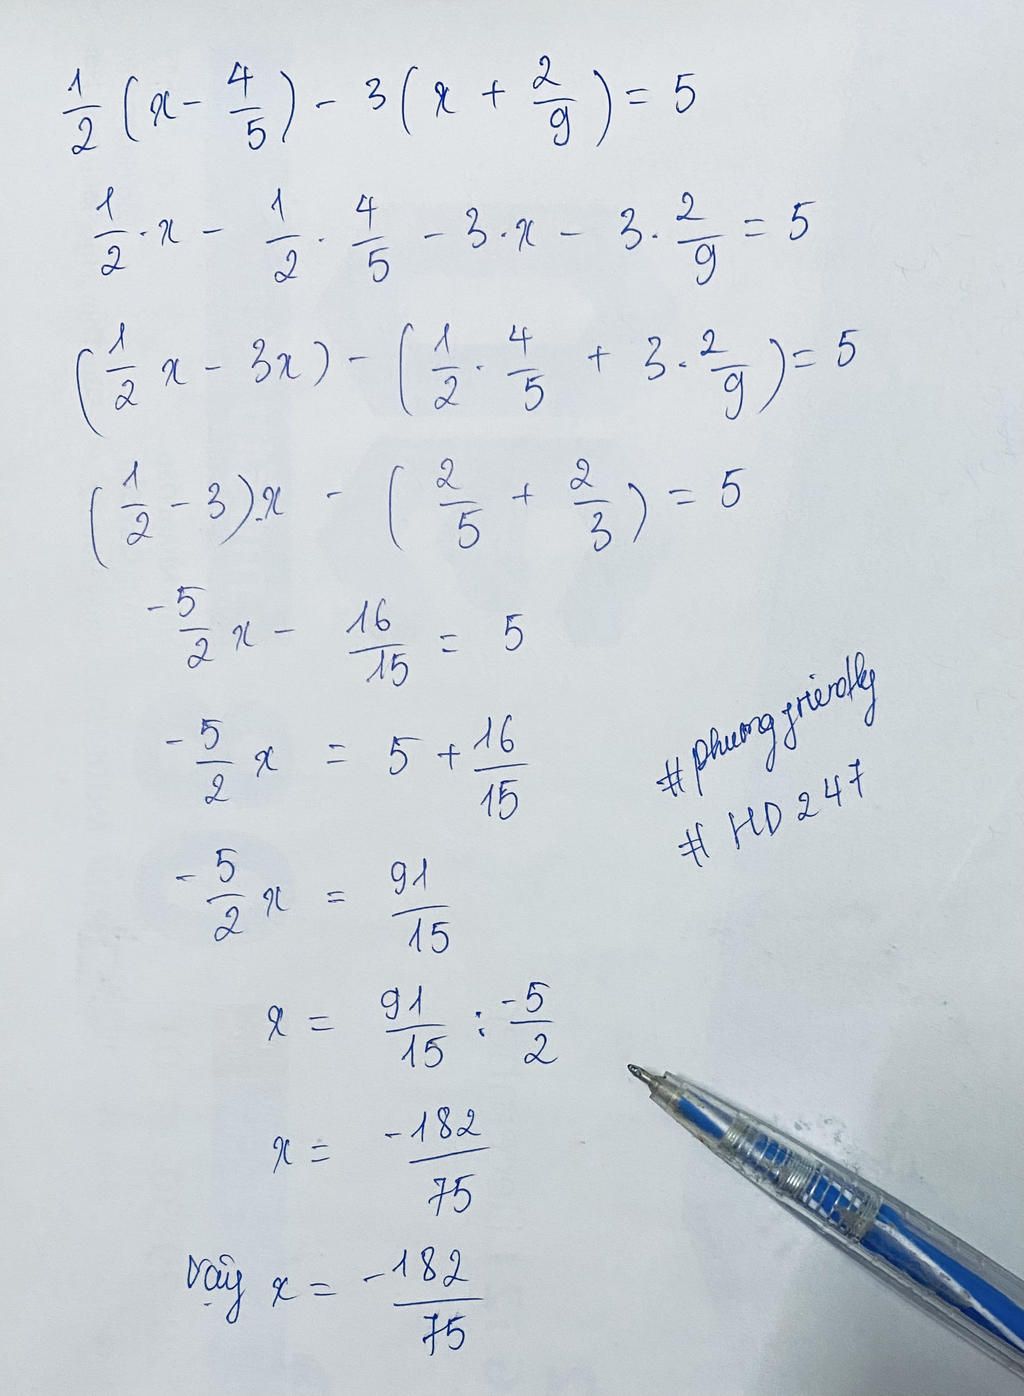 1/2 (x - 4/5) - 3 (x + 2/9) = 5
1/2 . x - 1/2 . 4/5 - 3 . x - 3 . 2/9 = 5
(1/2 x - 3x) - (1/2 . 4/5 + 3 . 2/9) = 5
(1/2 - 3) . x - (2/5 + 2/3) = 5
-5/2 x - 16/15 = 5
-5/2 x = 5 + 16/15
-5/2 x = 91/15
x = 91/15 : -5/2
x = -182/75
Vậy x = -182/75
#phuongfriendly
#HD247